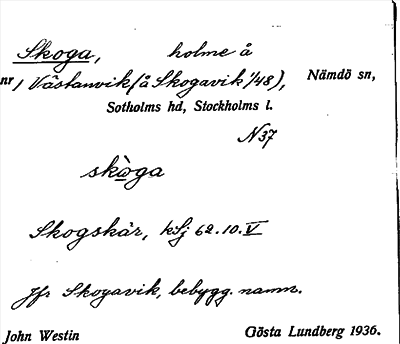 Skoga, holme å
nr 1 Västanvik (å Skogavik 1/48), Nämdö sn,
Sotholms hd, Stockholms l.
N 37
skòga
Skogskär, ksj 62.10.V
Jfr Skogavik, bebygg. namn.
John Westin Gösta Lundberg 1936.